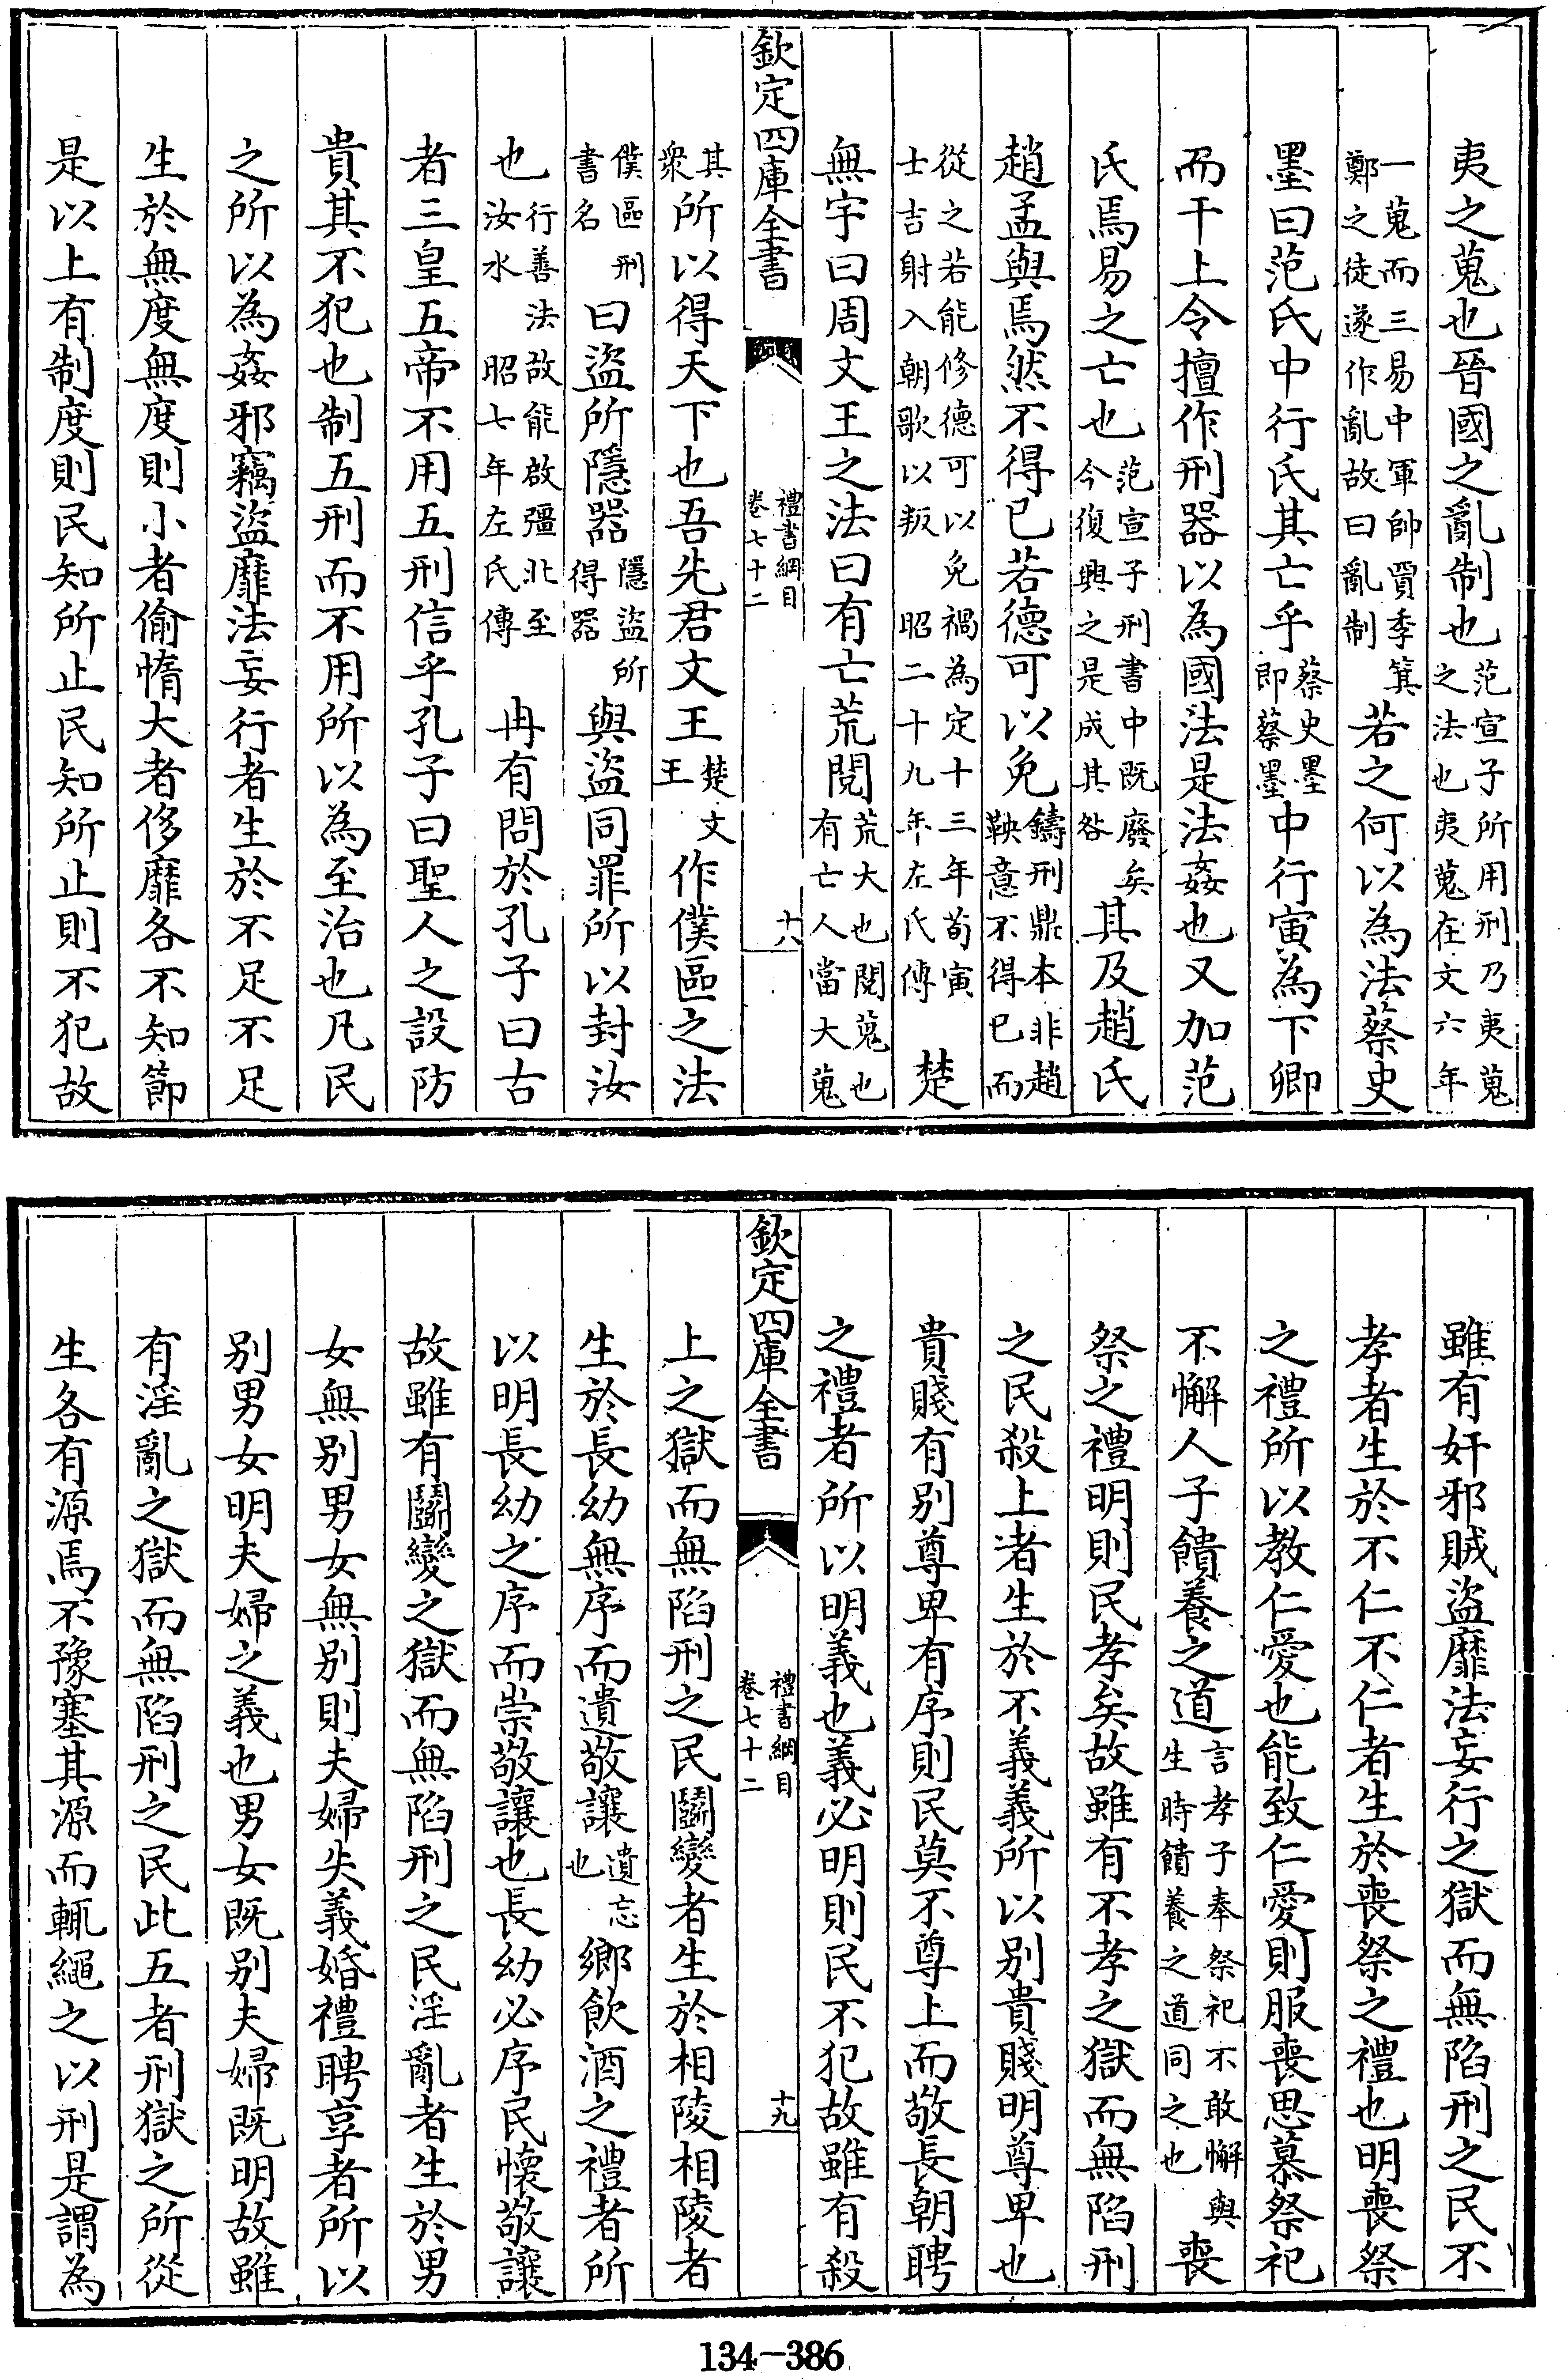 夷之蒐也晉國之亂制也范宣子所用刑乃夷蒐之法也夷蒐在文六年
一蒐而三易中軍帥賈季箕鄭之徒遂作亂故曰亂制若之何以為法蔡史
墨曰范氏中行氏其亡乎蔡史墨即蔡墨中行寅為下卿
而干上令擅作刑器以為國法是法姦也又加范
氏焉易之亡也范宣子刑書中既廢矣今復興之是成其咎其及趙氏
趙孟與焉然不得已若德可以免鑄刑鼎本非趙鞅意不得已而
從之若能修德可以免禍為定十三年荀寅士吉射入朝歌以叛昭二十九年左氏傳楚
無宇曰周文王之法曰有亡荒閱荒大也閱蒐也有亡人當大蒐
欽定四庫全書
禮書綱目
卷七十二
十八
其衆所以得天下也吾先君文王楚文王作僕區之法
僕區刑書名曰盜所隱器隱盜所得器與盜同罪所以封汝
也行善法故能啟疆北至汝水昭七年左氏傳冉有問於孔子曰古
者三皇五帝不用五刑信乎孔子曰聖人之設防
貴其不犯也制五刑而不用所以為至治也凡民
之所以為姦邪竊盜靡法妄行者生於不足不足
生於無度無度則小者偷惰大者侈靡各不知節
是以上有制度則民知所止民知所止則不犯故
雖有奸邪賊盜靡法妄行之獄而無陷刑之民不
孝者生於不仁不仁者生於喪祭之禮也明喪祭
之禮所以教仁愛也能致仁愛則服喪思慕祭祀
不懈人子饋養之道言孝子奉祭祀不敢懈與生時饋養之道同之也喪
祭之禮明則民孝矣故雖有不孝之獄而無陷刑
之民殺上者生於不義義所以别貴賤明尊卑也
貴賤有别尊卑有序則民莫不尊上而敬長朝聘
之禮者所以明義也義必明則民不犯故雖有殺
欽定四庫全書
禮書綱目
卷七十二
十九
上之獄而無陷刑之民鬭變者生於相陵相陵者
生於長幼無序而遺敬讓遺忘也鄉飲酒之禮者所
以明長幼之序而崇敬讓也長幼必序民懷敬讓
故雖有鬭變之獄而無陷刑之民淫亂者生於男
女無别男女無别則夫婦失義婚禮聘享者所以
别男女明夫婦之義也男女既别夫婦既明故雖
有淫亂之獄而無陷刑之民此五者刑獄之所從
生各有源焉不豫塞其源而輒繩之以刑是謂為
134-386